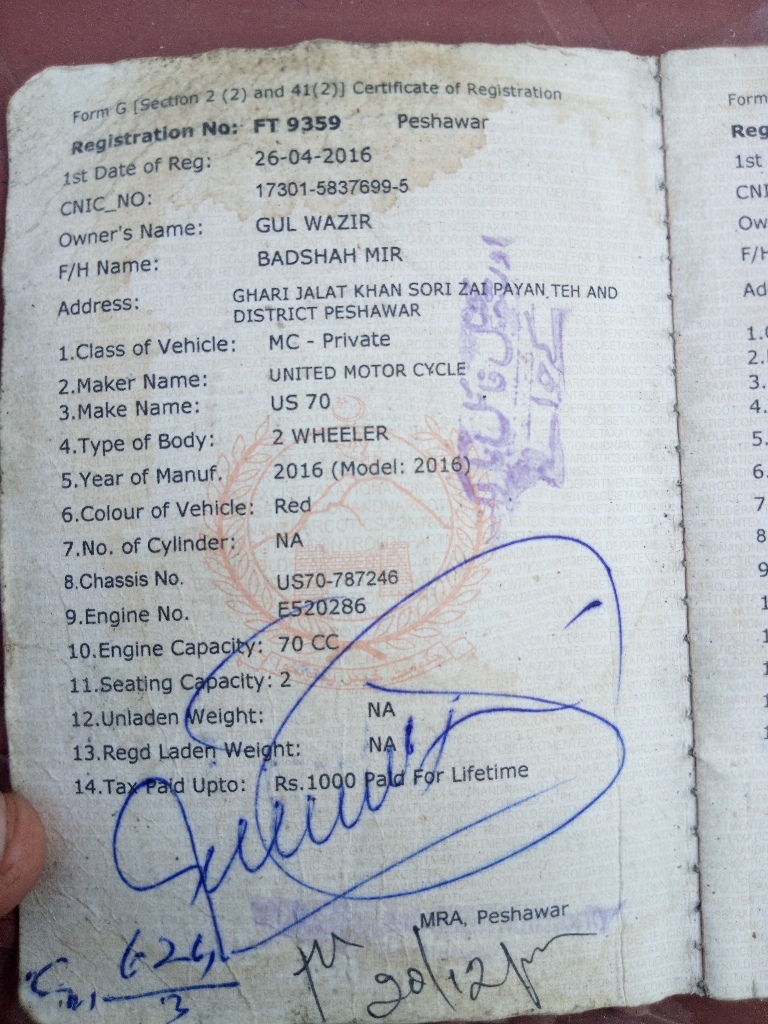 Form G [Section 2 (2) and 41(2)] Certificate of Registration
Registration No: FT 9359 Peshawar
1st Date of Reg: 26-04-2016
CNIC_NO: 17301-5837699-5
Owner's Name: GUL WAZIR
F/H Name: BADSHAH MIR
Address: GHARI JALAT KHAN SORI ZAI PAYAN,TEH AND
DISTRICT PESHAWAR
1.Class of Vehicle: MC - Private
2.Maker Name: UNITED MOTOR CYCLE
3.Make Name: US 70
4.Type of Body: 2 WHEELER
5.Year of Manuf. 2016 (Model: 2016)
6.Colour of Vehicle: Red
7.No. of Cylinder: NA
8.Chassis No. US70-787246
9.Engine No. E520286
10.Engine Capacity: 70 CC
11.Seating Capacity: 2
12.Unladen Weight: NA
13.Regd Laden Weight: NA
14.Tax Paid Upto: Rs.1000 Paid For Lifetime
MRA, Peshawar
Form
Reg
1st
CNI
Ow
F/H
Ad
1.
2.
3.
4.
5.
6.
7
8
9